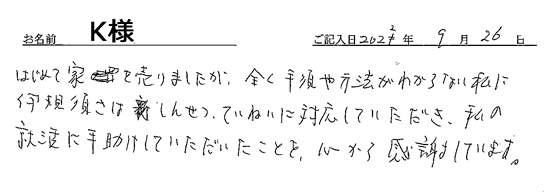 お名前 K様 ご記入日2022年 9月 26日
はじめて家を売りましたが、全く手順や方法がわからない私に
さは しんせつ、ていねいに対応していただき、私の
に手助けしていただいたことを、心から感謝しています。